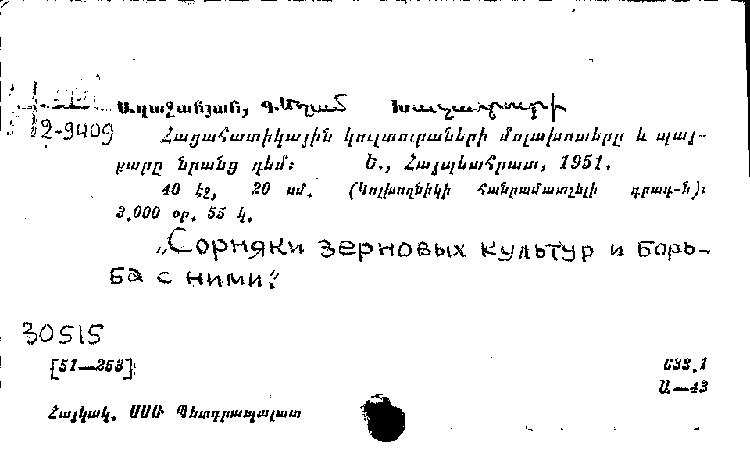 2-9409
Աղաջանյան, Գ. Խաչատուրի
Հացահատիկային կուլտուրաների մոլախոտերը և պայ-
քարը նրանց դեմ: Ե., Հայպետհրատ, 1951.
40 էջ, 20 սմ. (Կոլխոզնիկի հանրամատչելի գրադ-ն):
3.000 օր. 55 կ.
„Сорняки зерновых культур и борь-
ба с ними".
30515
[51—253]
633.1
Ա—43
Հայկակ. ՍՍՌ Պետգրապալատ